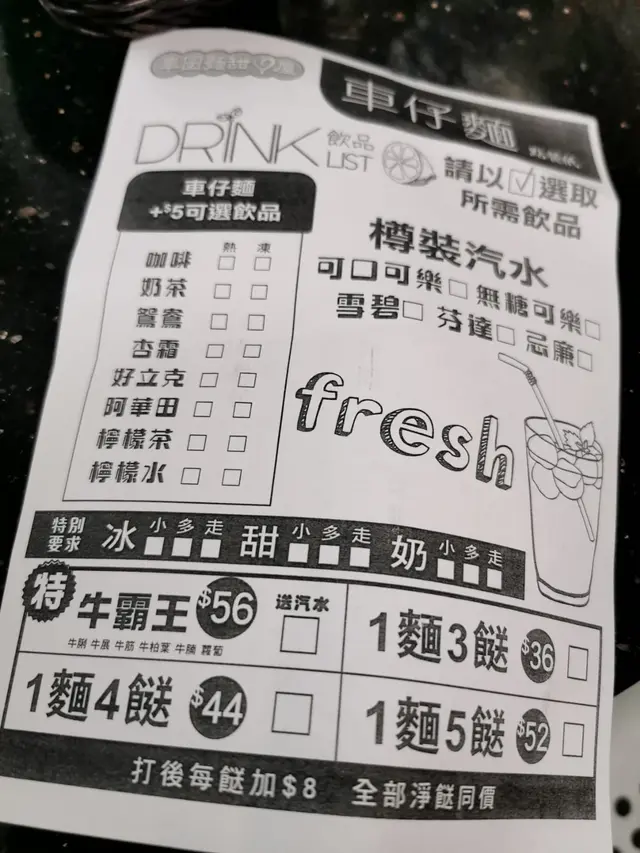 車仔麵甜心屋
車仔麵 點餐紙
DRINK 飲品
LIST
請以☑選取
所需飲品
車仔麵
+$5可選飲品
熱 凍
咖啡 □ □
奶茶 □ □
鴛鴦 □ □
杏霜 □ □
好立克 □ □
阿華田 □ □
檸檬茶 □ □
檸檬水 □ □
樽裝汽水
可口可樂□ 無糖可樂□
雪碧□ 芬達□ 忌廉□
fresh
特別要求 冰 小 多 走 甜 小 多 走 奶 小 多 走
特 牛霸王 $56 送汽水 □
牛脷 牛展 牛筋 牛柏葉 牛腩 蘿蔔
1麵3餸 $36 □
1麵4餸 $44 □
1麵5餸 $52 □
打後每餸加$8 全部淨餸同價